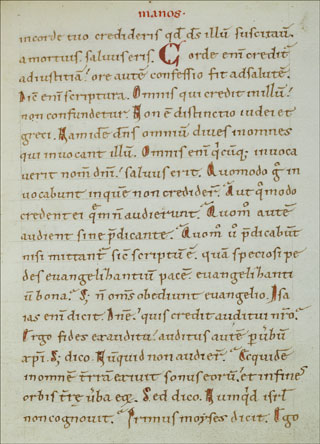 manos.
incorde tuo credideris qd ds illū suscitauit
amortuis. saluus eris. Corde enī credit̄
adiustitiā. ore autē confessio fit adsalutē.
Dic̄ enī scriptura. Omnis qui credit inillū.
non confundetur. Non ē distinctio iudei et
greci. Nam idē dn̄s omniū diues inomnes
qui inuocant illū. Omnis enī q̄cūq; inuoca
uerit nom̄ dn̄i. saluus erit. Quomodo g̊ in
uocabunt inquē non crediderī. Aut q̊modo
credent ei quē n̄ audierunt. Quom̊ autē
audient sine p̄dicante. Quom̊ ū p̄dicabūt
nisi mittant̄ sic̄ scriptū ē. quā speciosi pe
des euangelizantiū pacē. euangelizanti
ū bona. S; n̄ om̄s obediunt euangelio. Isa
ias enī dicit. Dn̄e. quis credidit auditui nr̄o.
Ergo fides exauditu. auditus autē p̄ uerbū
xp̄i. S; dico. Nūquid non audier̄. Et quidē
inomnē terrā exiuit sonus eorū. et infines
orbis terre uba eoꝝ. Sed dico. Nūquid isrl̄
non cognouit. Primus moyses dicit. Ego